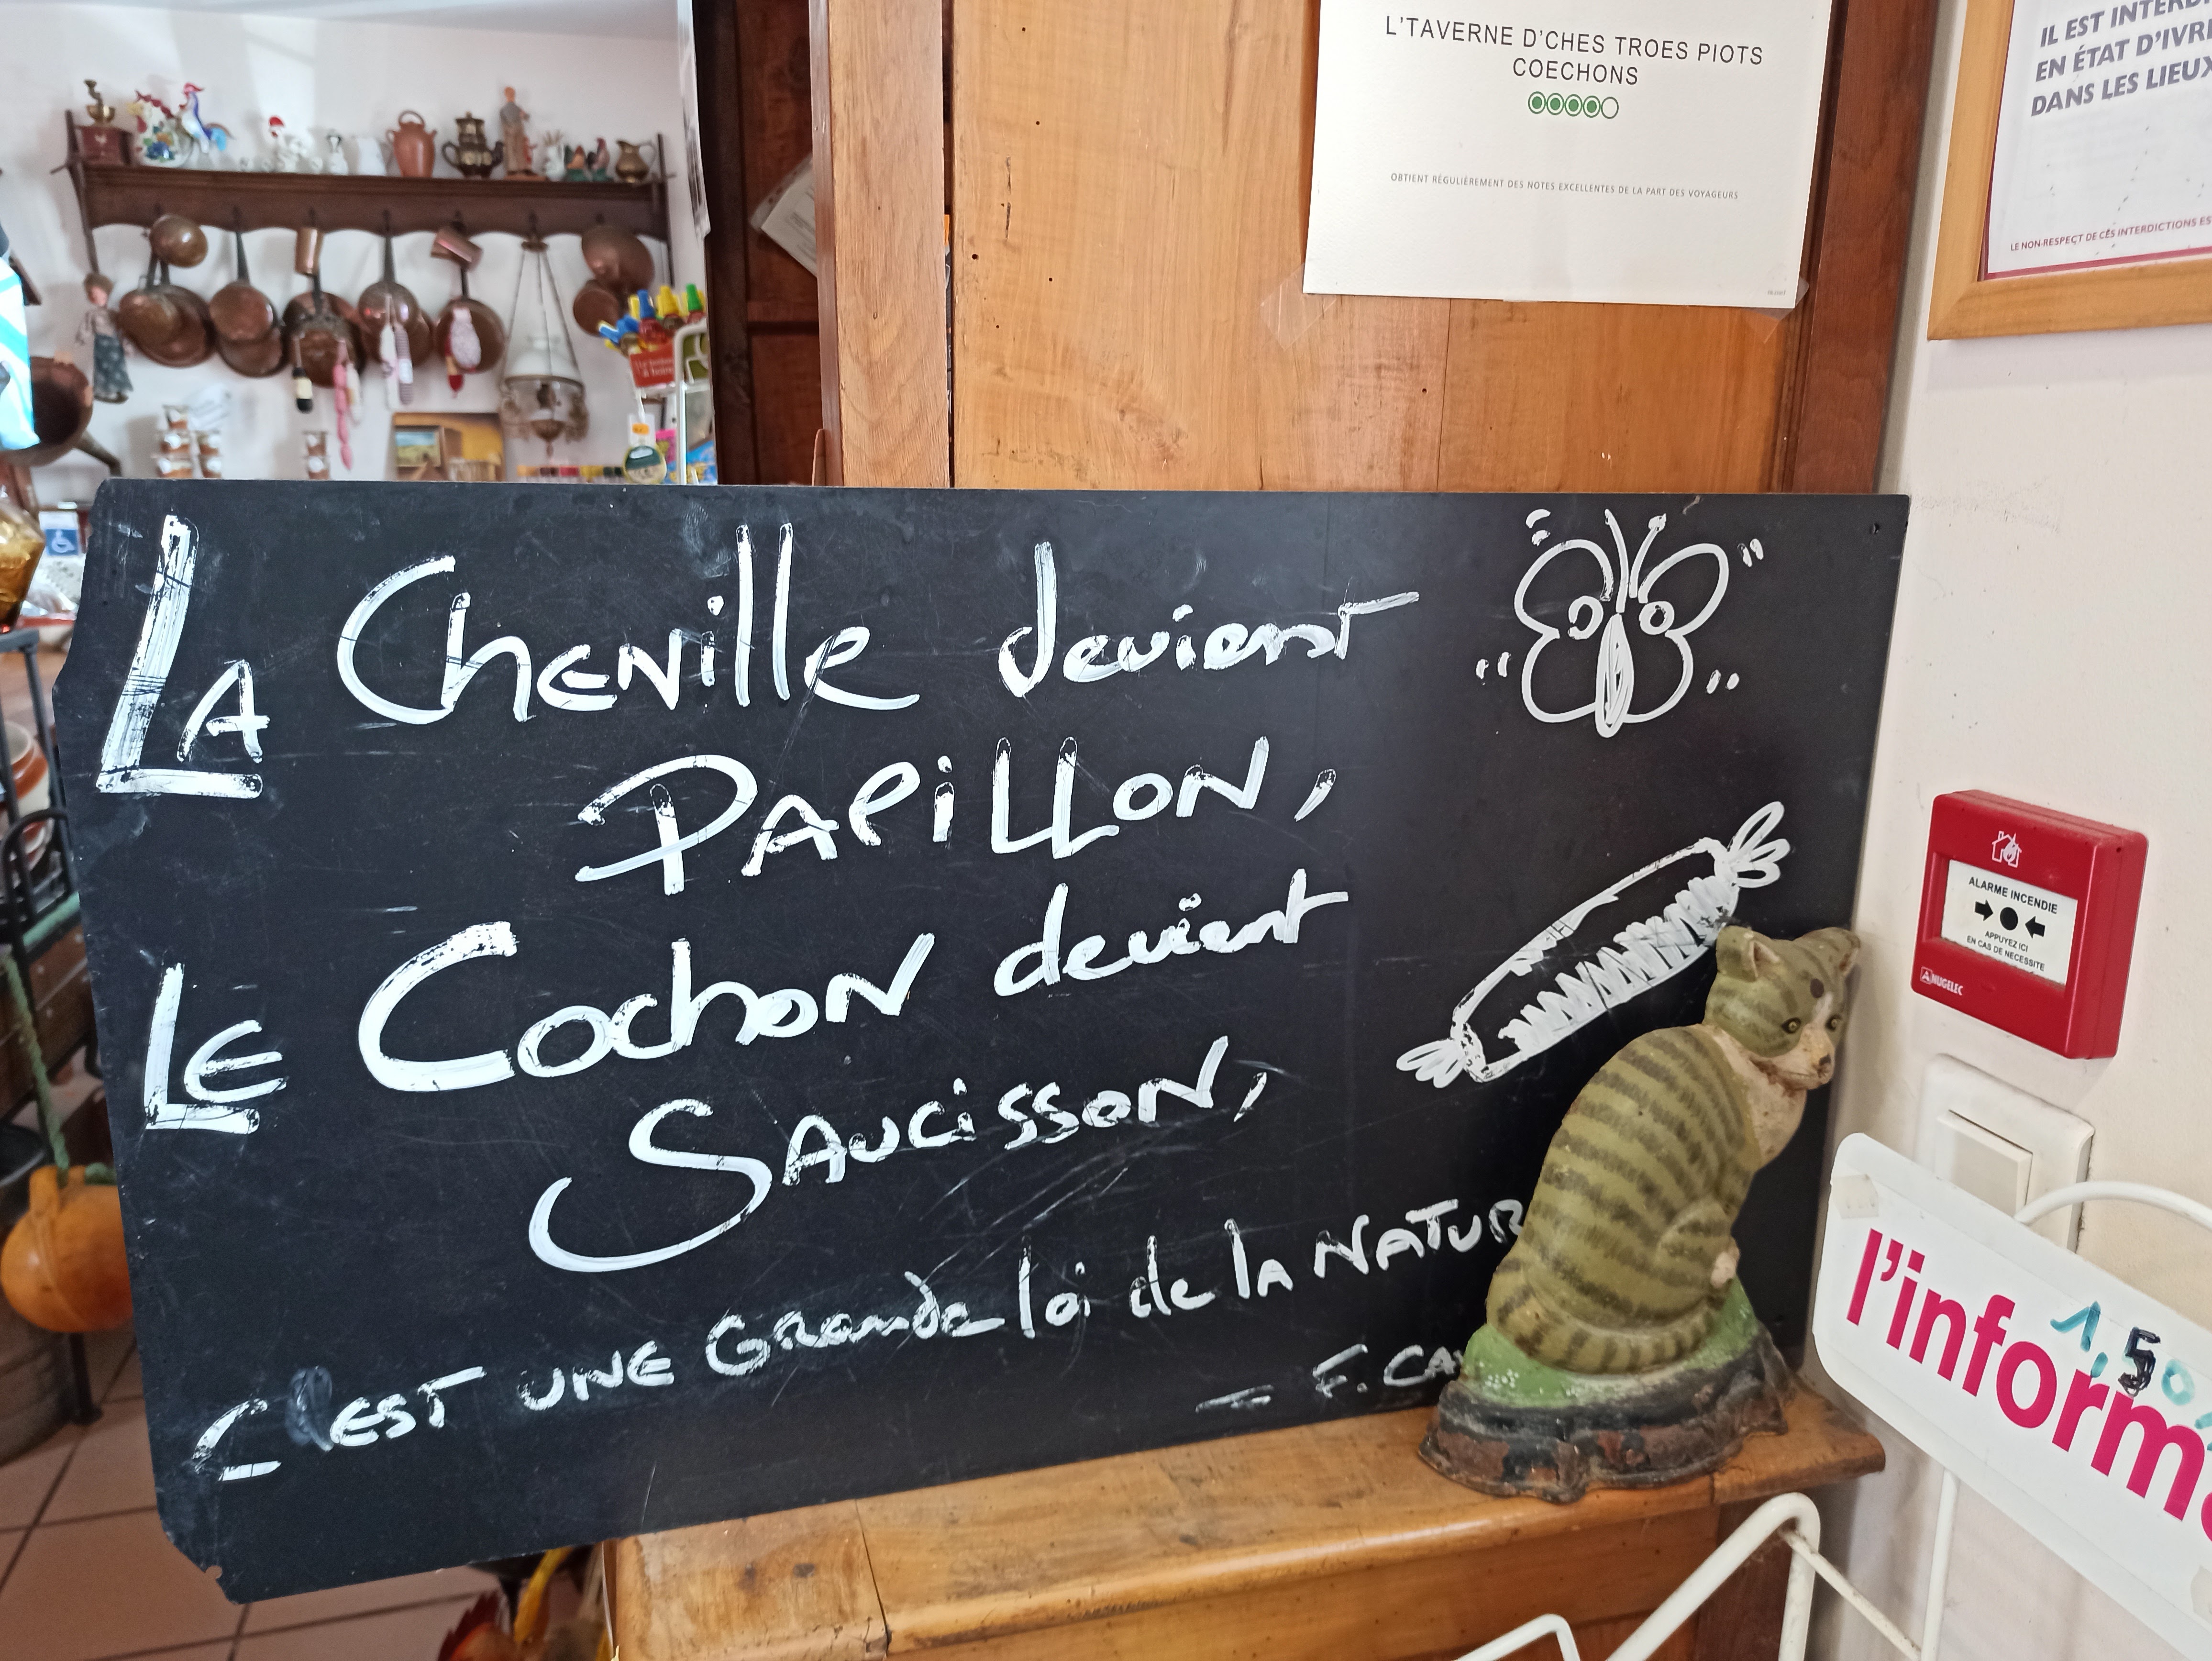 L'TAVERNE D'CHES TROES PIOTS
COECHONS
OBTIENT RÉGULIÈREMENT DES NOTES EXCELLENTES DE LA PART DES VOYAGEURS
IL EST INTERDI
EN ÉTAT D'IVR
DANS LES LIEUX
LE NON-RESPECT DE CES INTERDICTIONS ES
LA Chenille devient
PAPILLON,
LE Cochon devient
SAUCISSON,
C'EST UNE Grande loi de la NATUR
- F. CA
ALARME INCENDIE
APPUYEZ ICI
EN CAS DE NECESSITE
NUGELEC
l'inform
1,50